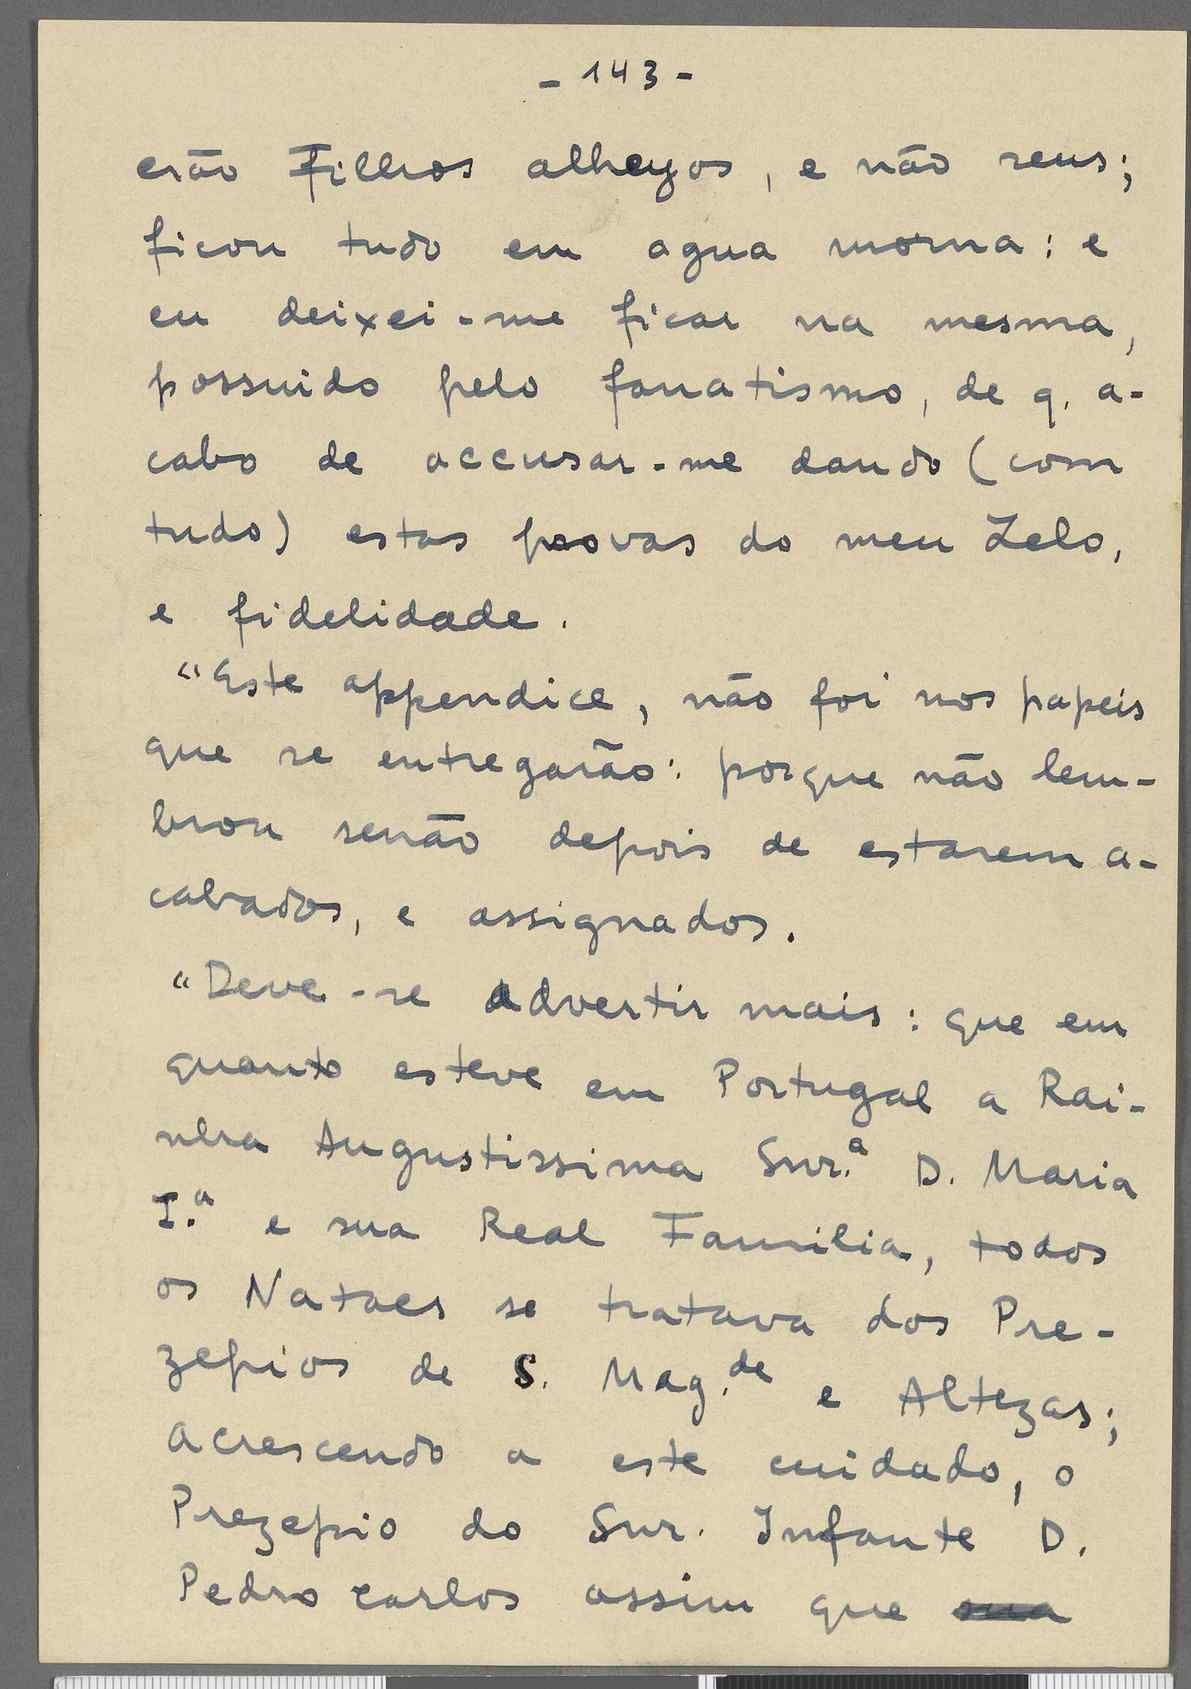 - 143 -
erão Filhos alheyos, e não seus;
ficou tudo em agua morna: e
eu deixei-me ficar na mesma,
possuido pelo fanatismo, de q. a-
cabo de accusar-me dando (com
tudo) estas provas do meu Zelo,
e fidelidade.
"Este appendice, não foi nos papeis
que se entregarão: porque não lem-
brou senão depois de estarem a-
cabados, e assignados.
"Deve-se advertir mais: que em
quanto esteve em Portugal a Rai-
nha Augustissima Snr.ª D. Maria
I.ª e sua Real Familia, todos
os Nataes se tratava dos Pre-
zepios de S. Mag.de e Altezas;
acrescendo a este cuidado, o
Prezepio do Snr. Infante D.
Pedro Carlos assim que sua